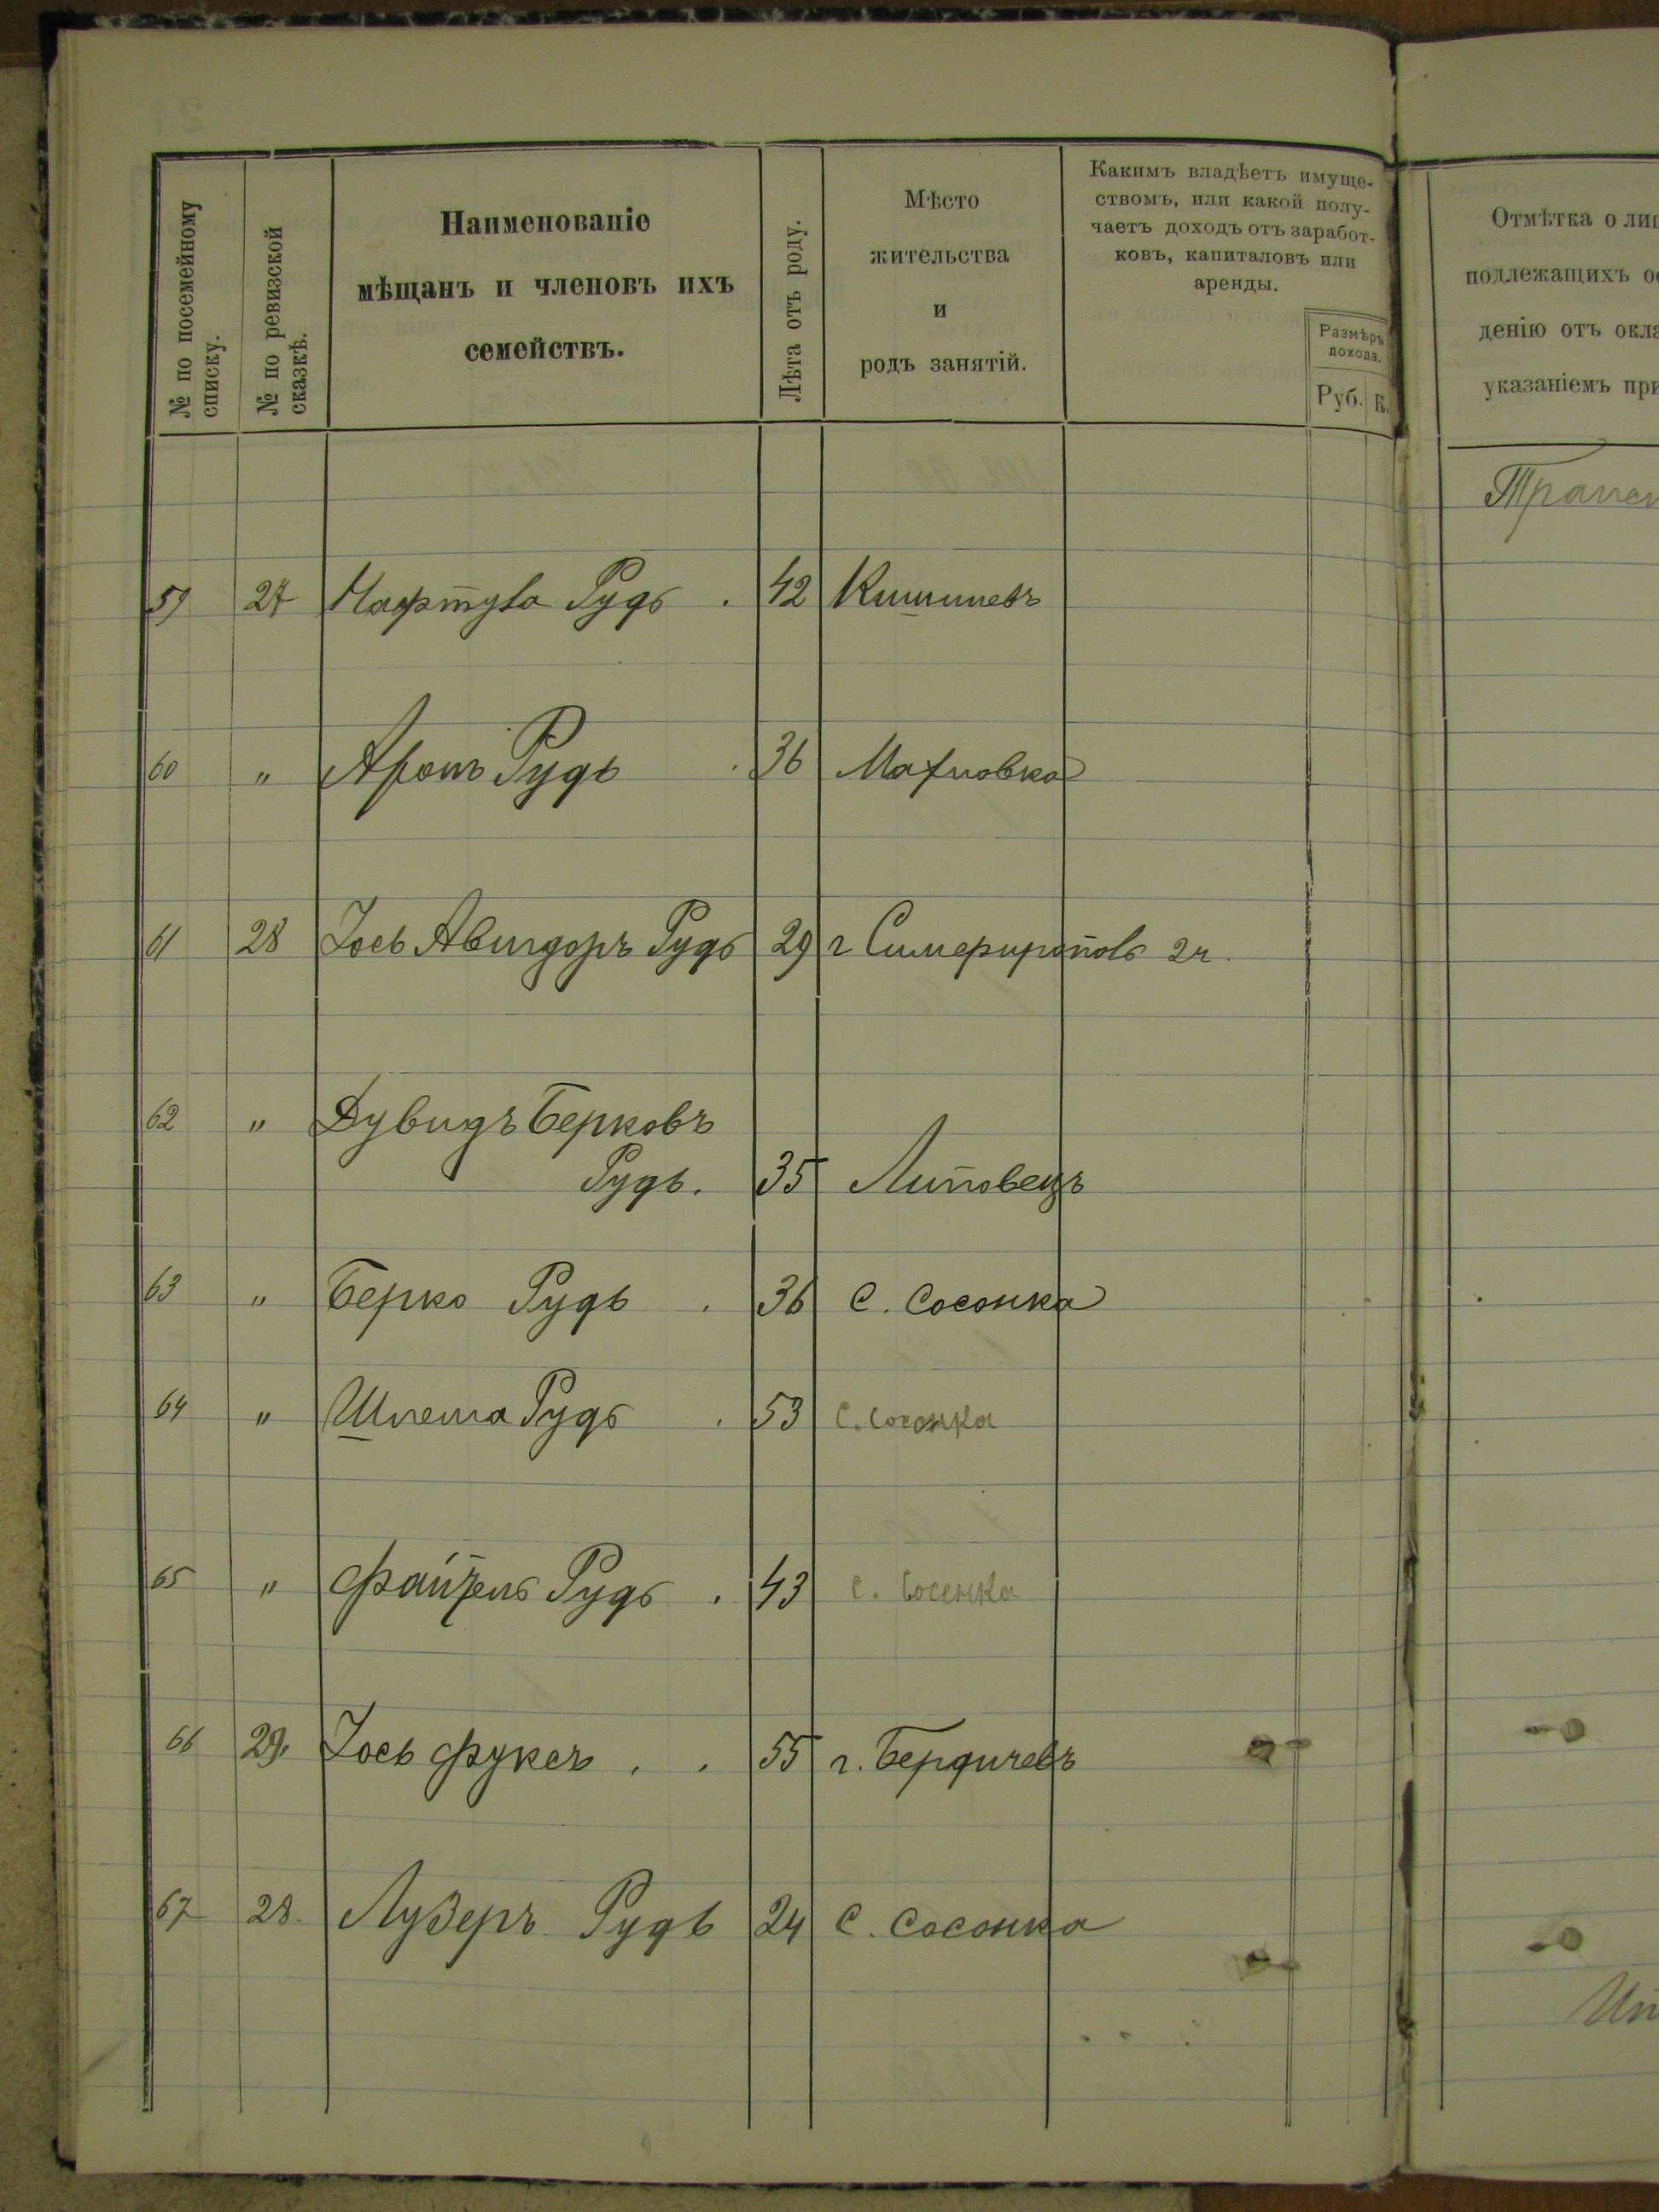 № по посемейному
списку.
№ по ревизской
сказкѣ.
Наименованіе
мѣщанъ и членовъ ихъ
семействъ.
Лѣта отъ роду.
Мѣсто
жительства
и
родъ занятій.
Какимъ владѣетъ имуще-
ствомъ, или какой полу-
чаетъ доходъ отъ заработ-
ковъ, капиталовъ или
аренды.
Размѣръ
дохода.
Руб. К.
Отмѣтка о лиц
подлежащихъ ос
денію отъ окла
указаніемъ при
59 27 Нафтула Рудь . 42 Кишиневъ
60 " Аронъ Рудь . 36 Махновка
61 28 Іось Авигдоръ Рудь 29 г Симферополь 2 ч.
62 " Дувидъ Берковъ
Рудь. 35 Липовецъ
63 " Берко Рудь . 36 С. Сосонка
64 " Шлема Рудь . 53 с. Сосонка
65 " Файзель Рудь . 43 с. Сосенка
66 29. Іось Фуксъ . . 55 г. Бердичевъ
67 28. Лузеръ Рудь 24 С. Сосонка